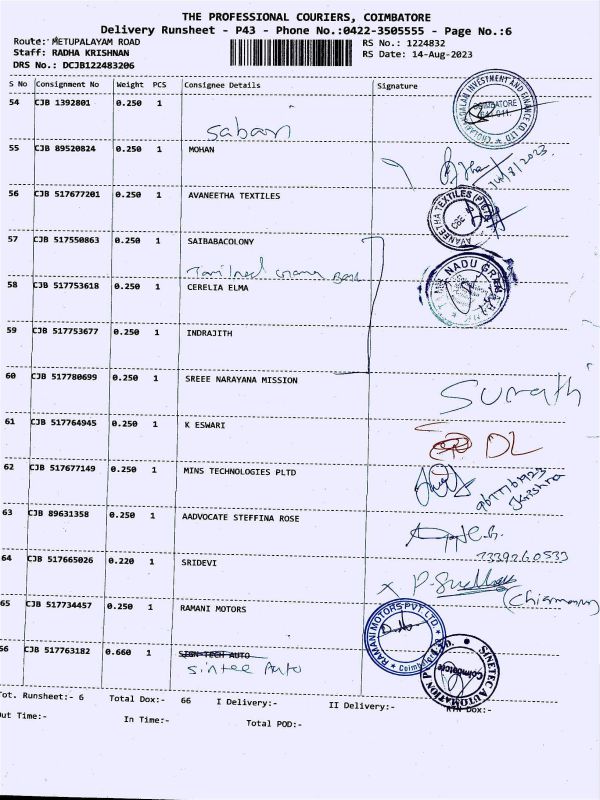 THE PROFESSIONAL COURIERS, COIMBATORE
Delivery Runsheet - P43 - Phone No.:0422-3505555 - Page No.:6
Route: METUPALAYAM ROAD RS No.: 1224832
Staff: RADHA KRISHNAN RS Date: 14-Aug-2023
DRS No.: DCJB122483206
S No Consignment No Weight PCS Consignee Details Signature
54 CJB 1392801 0.250 1
Saban
CHOLAMANDALAM INVESTMENT AND FINANCE CO LTD COIMBATORE
55 CJB 89520824 0.250 1 MOHAN
14/8/2023
56 CJB 517677201 0.250 1 AVANEETHA TEXTILES
AVANEETHA TEXTILES (P) LTD CBE
57 CJB 517550863 0.250 1 SAIBABACOLONY
Tamilnad Grama Bank
TAMIL NADU GRAMA
58 CJB 517753618 0.250 1 CERELIA ELMA
59 CJB 517753677 0.250 1 INDRAJITH
60 CJB 517780699 0.250 1 SREEE NARAYANA MISSION
Surath
61 CJB 517764945 0.250 1 K ESWARI
DL
62 CJB 517677149 0.250 1 MINS TECHNOLOGIES PLTD
JKrishna
63 CJB 89631358 0.250 1 AADVOCATE STEFFINA ROSE
64 CJB 517665026 0.220 1 SRIDEVI
65 CJB 517734457 0.250 1 RAMANI MOTORS
RAMANI MOTORS PVT. LTD. Coimbatore
66 CJB 517763182 0.660 1 SIGN TECH AUTO
Sintec Auto
SINETEC AUTOMATION Coimbatore
Tot. Runsheet:- 6 Total Dox:- 66 I Delivery:- II Delivery:- RTN Dox:-
Out Time:- In Time:- Total POD:-